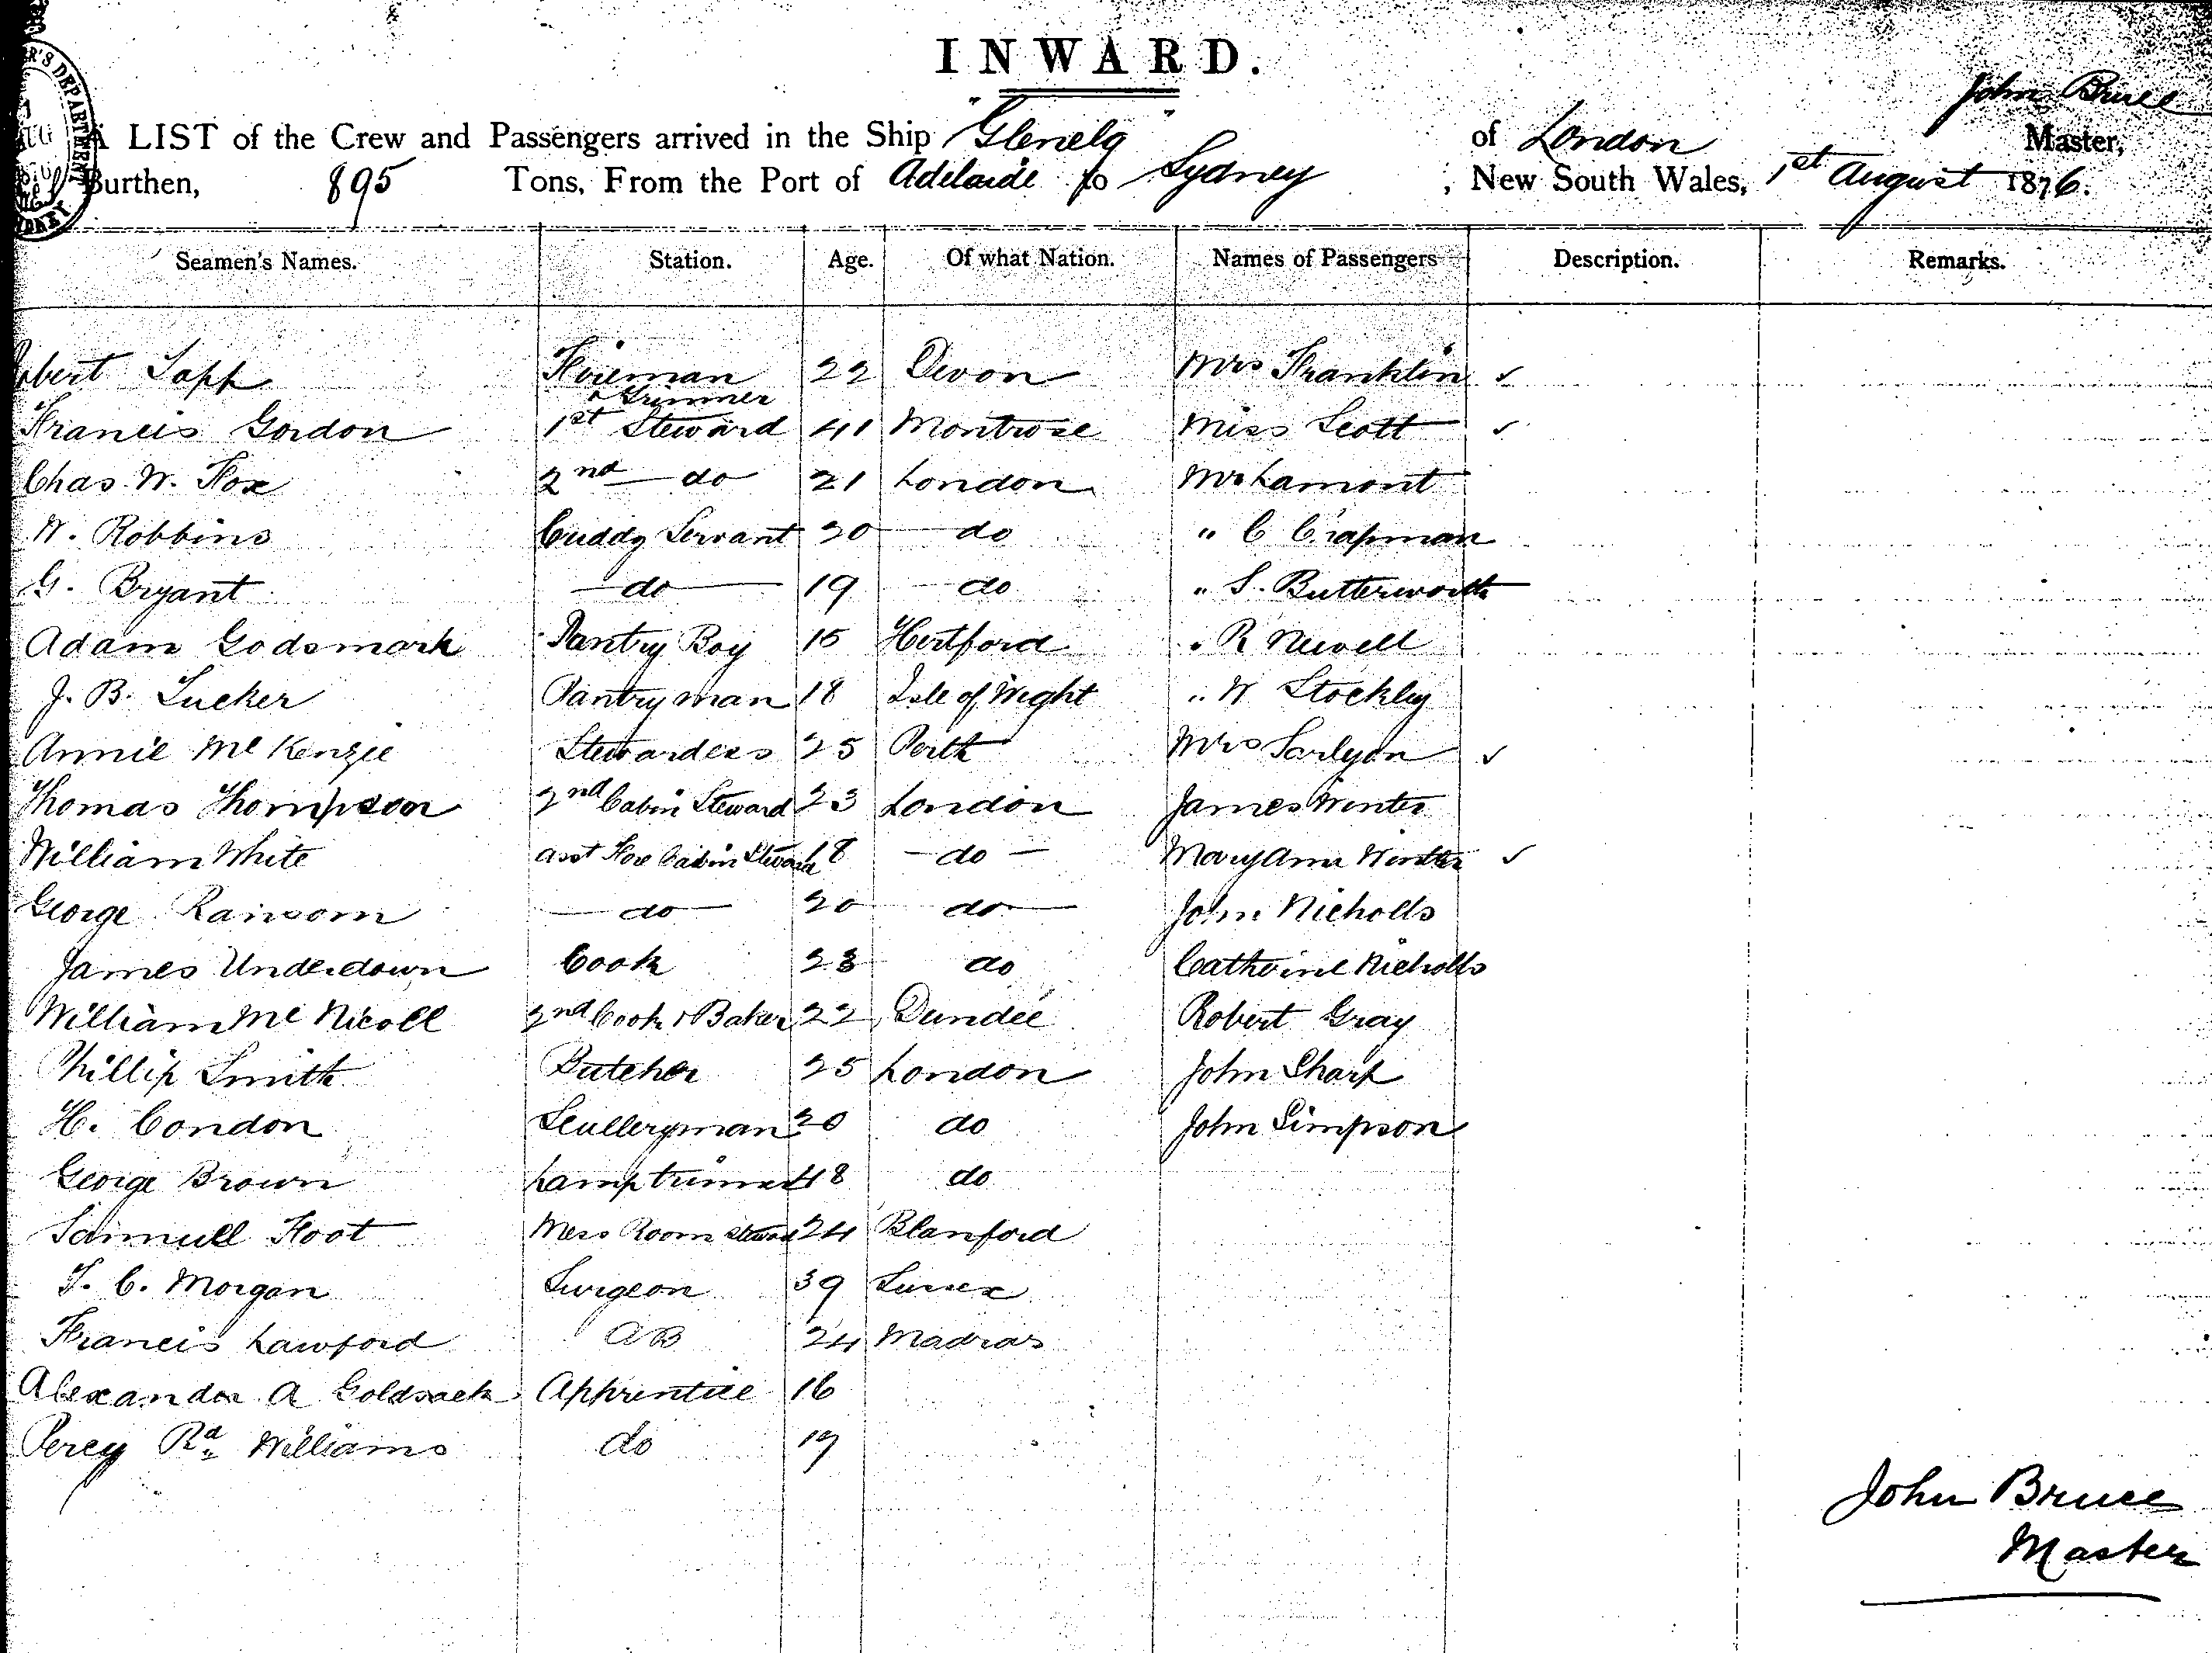 INWARD.
John Bruce
A LIST of the Crew and Passengers arrived in the Ship "Glenelg" of London Master,
Burthen, 895 Tons, From the Port of Adelaide to Sydney, New South Wales, 1st August 1876.
Seamen's Names. Station. Age. Of what Nation. Names of Passengers Description. Remarks.
Fireman 22 Devon Mrs Franklin ✓
& Trimmer
Francis Gordon 1st Steward 41 Montrose Miss Scott ✓
Chas. W. Fox 2nd do 21 London Mr Lamont
W. Robbins Cuddy Servant 20 do " C
G. Bryant do 19 do " S. Butterworth
Adam Godsmark Pantry Boy 15 Hertford " R Newell
J. B. Tucker Pantryman 18 Isle of Wight " W Stockley
Annie McKenzie Stewardess 25 Perth Mrs ✓
Thomas Thompson 2nd Cabin Steward 23 London James Winter
William White asst Fore Cabin Steward 18 do Mary Ann Winter ✓
George Ransom do 20 do John Nicholls
James Underdown Cook 23 do Catherine Nicholls
William McNicoll 2nd Cook & Baker 22 Dundee Robert Gray
Phillip Smith Butcher 25 London John Sharp
H. Condon Sculleryman 20 do John Simpson
George Brown Lamptrimmer 48 do
Samuell Foot Mess Room Steward 24 Blanford
T. C. Morgan Surgeon 39 Sussex
Francis Lawford AB 24 Madras
Alexander A Goldsack Apprentice 16
Percy Rd Williams do 17
John Bruce
Master